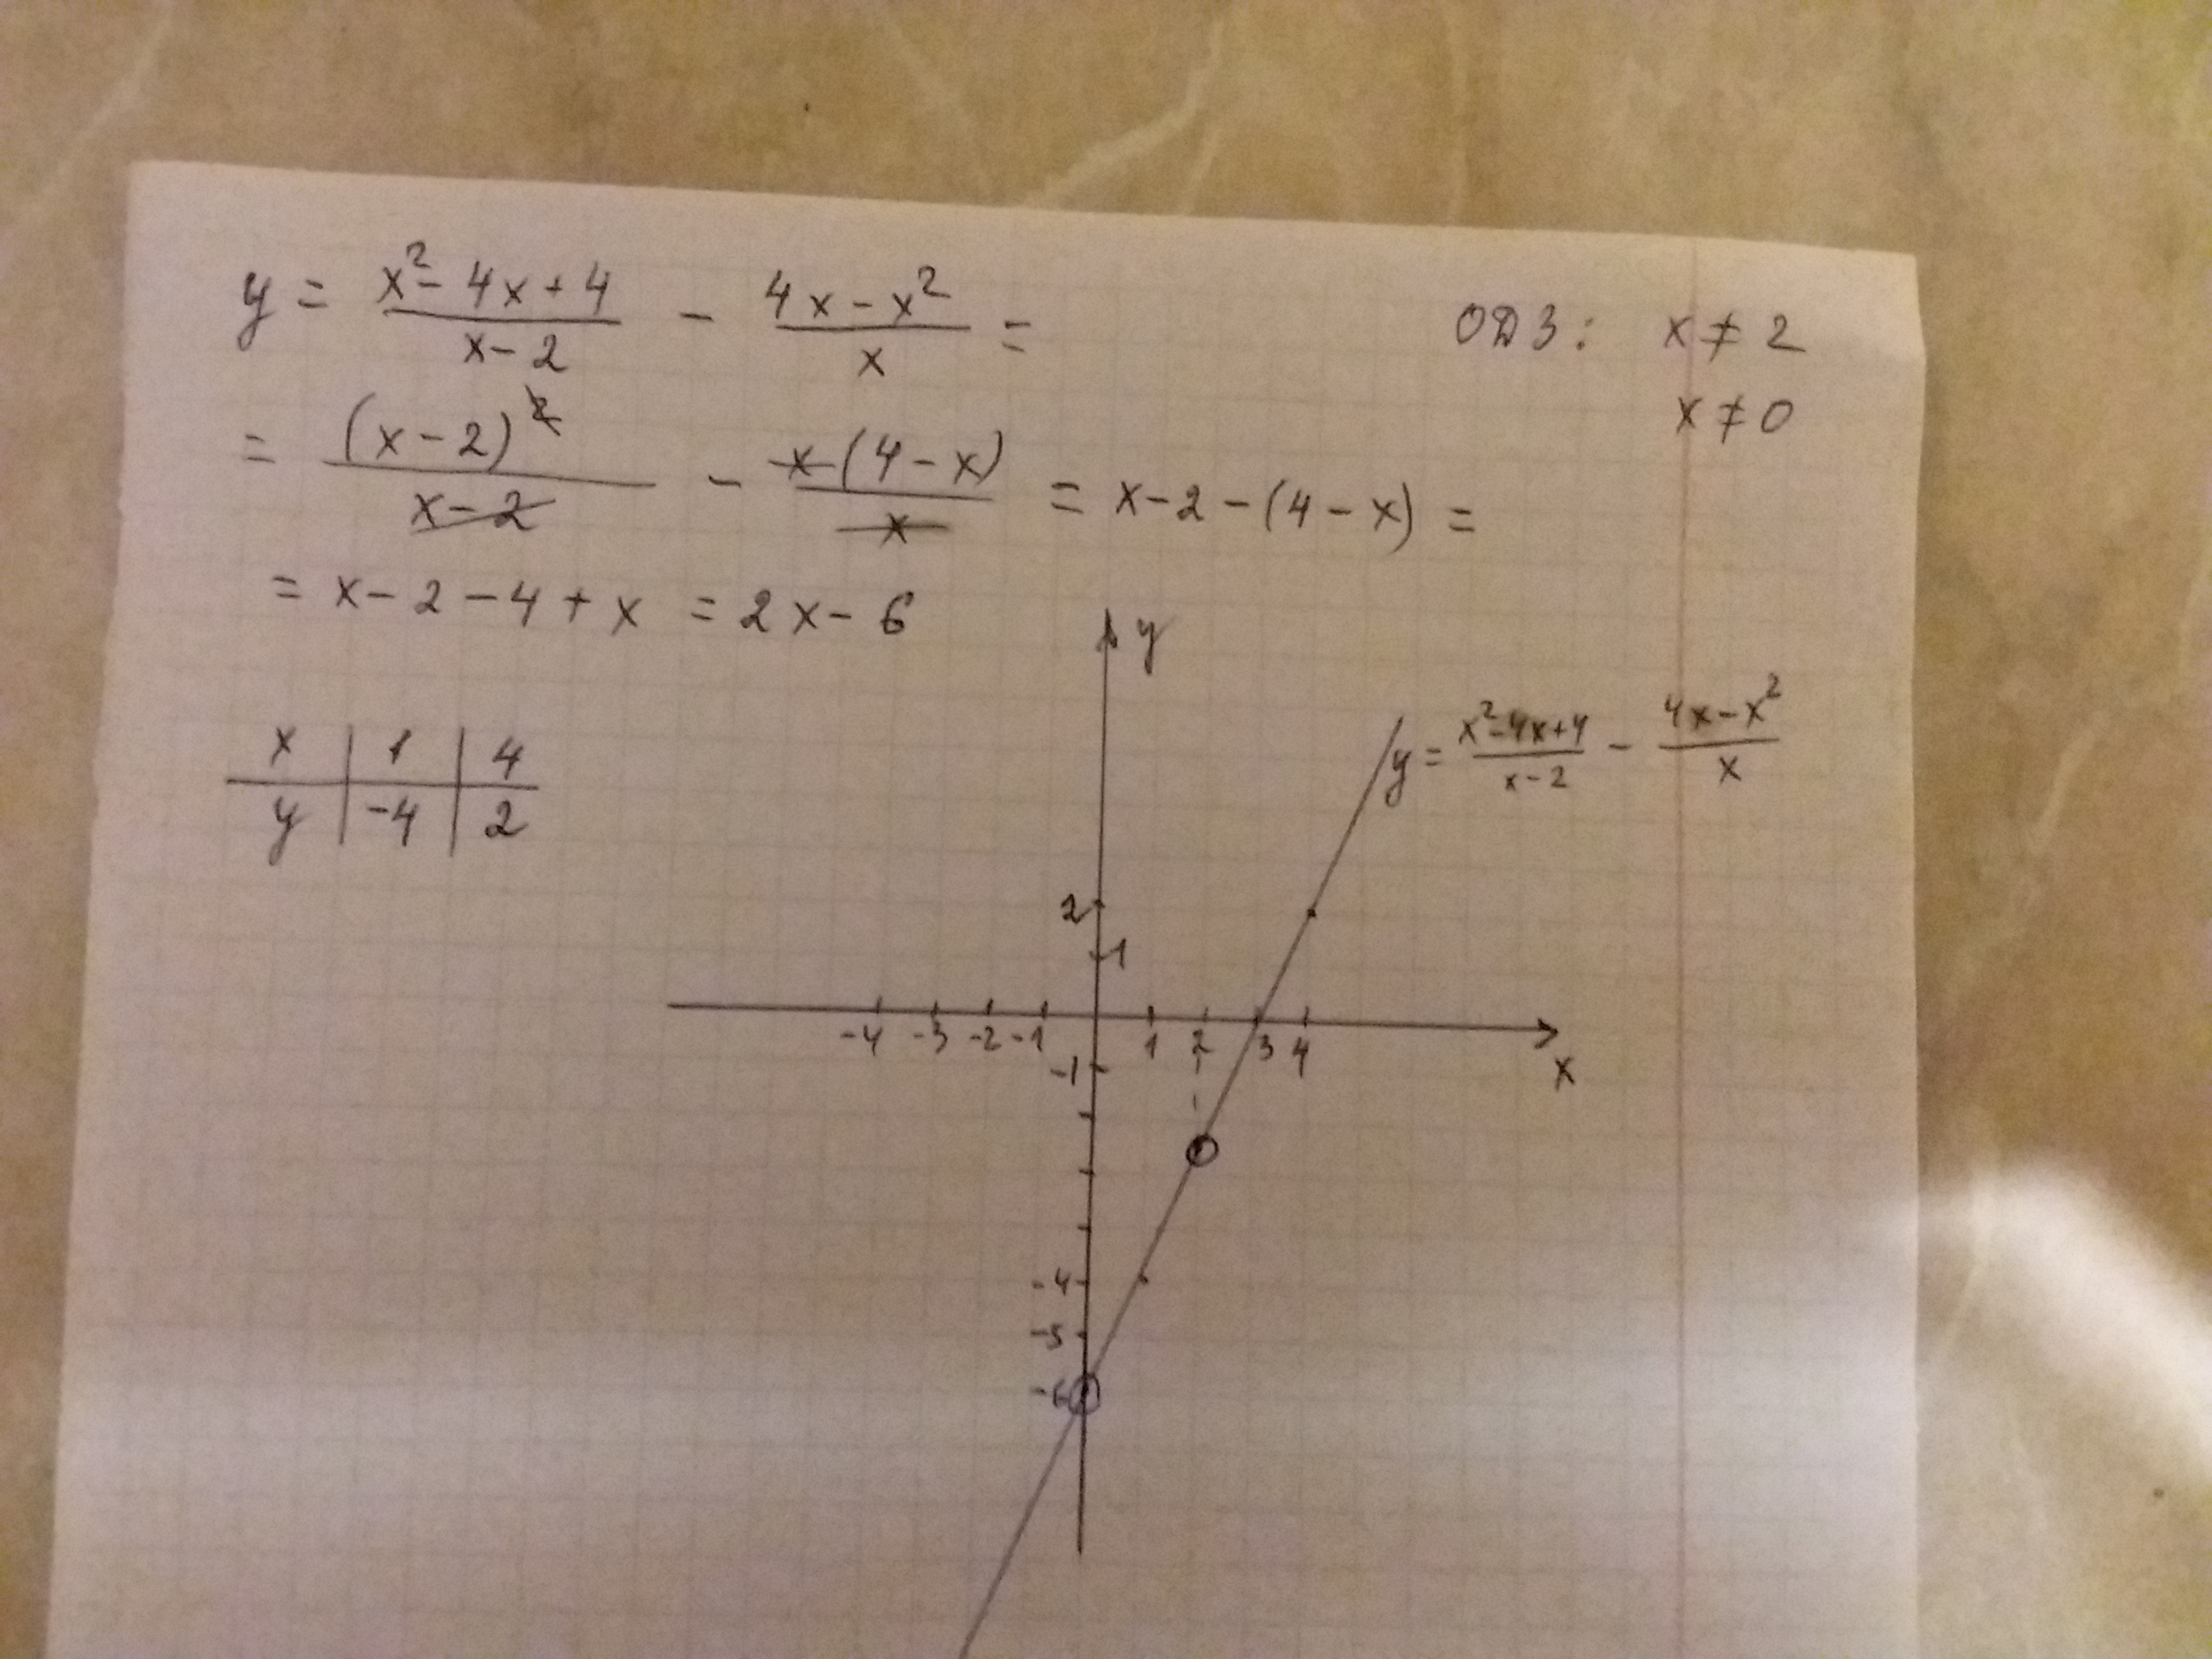 y = (x² - 4x + 4)/(x - 2) - (4x - x²)/x =
ОДЗ: x ≠ 2
x ≠ 0
= (x - 2)²/(x - 2) - x(4 - x)/x = x - 2 - (4 - x) =
= x - 2 - 4 + x = 2x - 6
x | 1 | 4
y | -4 | 2
y
y = (x² - 4x + 4)/(x - 2) - (4x - x²)/x
2
1
-4 -3 -2 -1 1 2 3 4
x
-1
-4
-5
-6